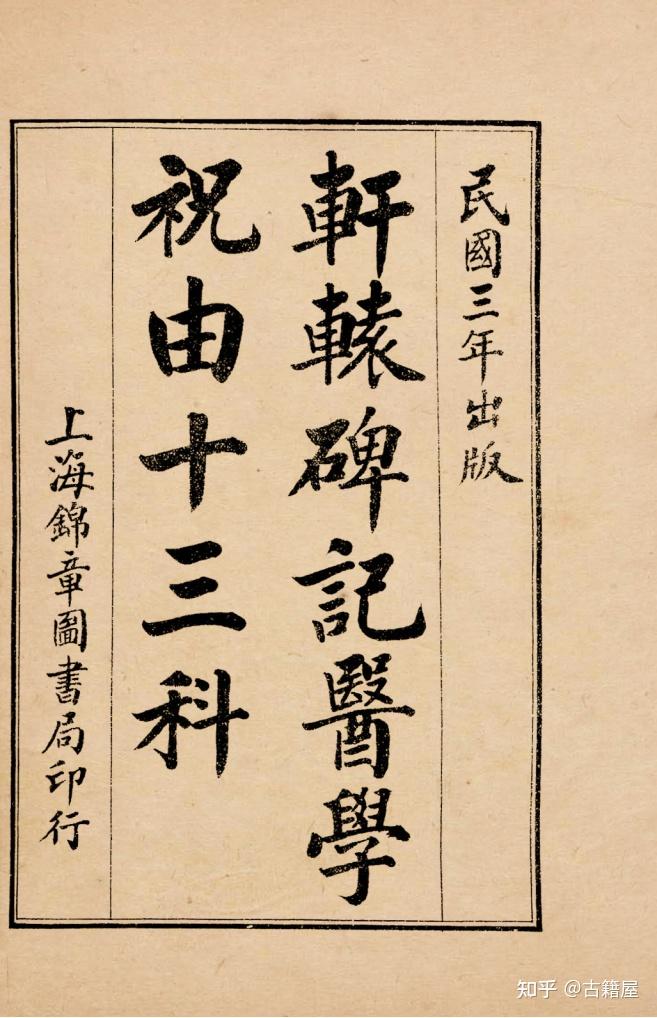 民國三年出版
軒轅碑記醫學
祝由十三科
上海錦章圖書局印行
知乎 @古籍屋